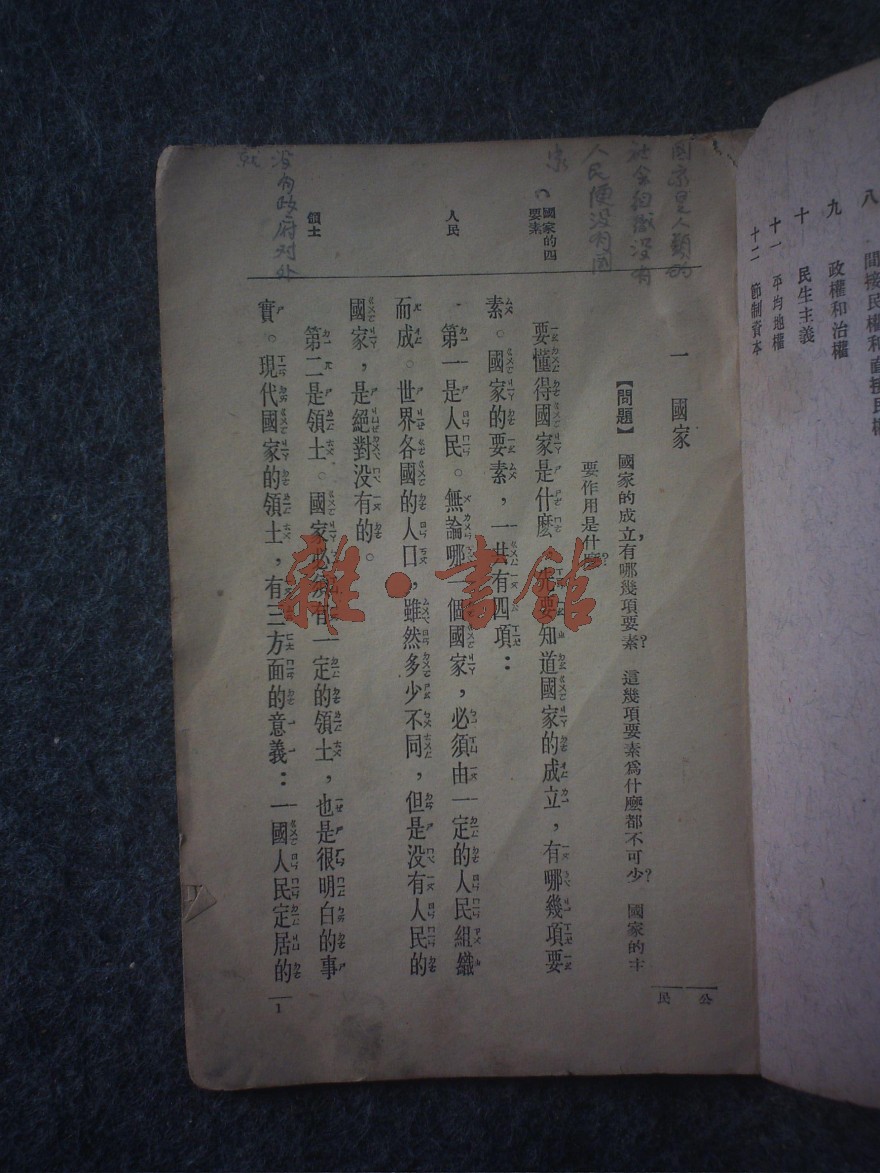 八 間接民權和直接民權
九 政權和治權
十 民生主義
十一 平均地權
十二 節制資本
公民
國家是人類的
社會組織沒有
人民便沒有國
家
一 國家
【問題】 國家的成立,有哪幾項要素? 這幾項要素爲什麼都不可少? 國家的主
要作用是什麼?
國家的四
要素
要懂得國家是什麼,先要知道國家的成立,有哪幾項要
素。國家的要素,一共有四項:
人民
第一是人民。無論哪一個國家,必須由一定的人民組織
而成。世界各國的人口,雖然多少不同,但是没有人民的
國家,是絕對没有的。
領土
第二是領土。國家必須有一定的領土,也是很明白的事
實。現代國家的領土,有三方面的意義:一國人民定居的
沒有政府对外
就
1
雜·書館